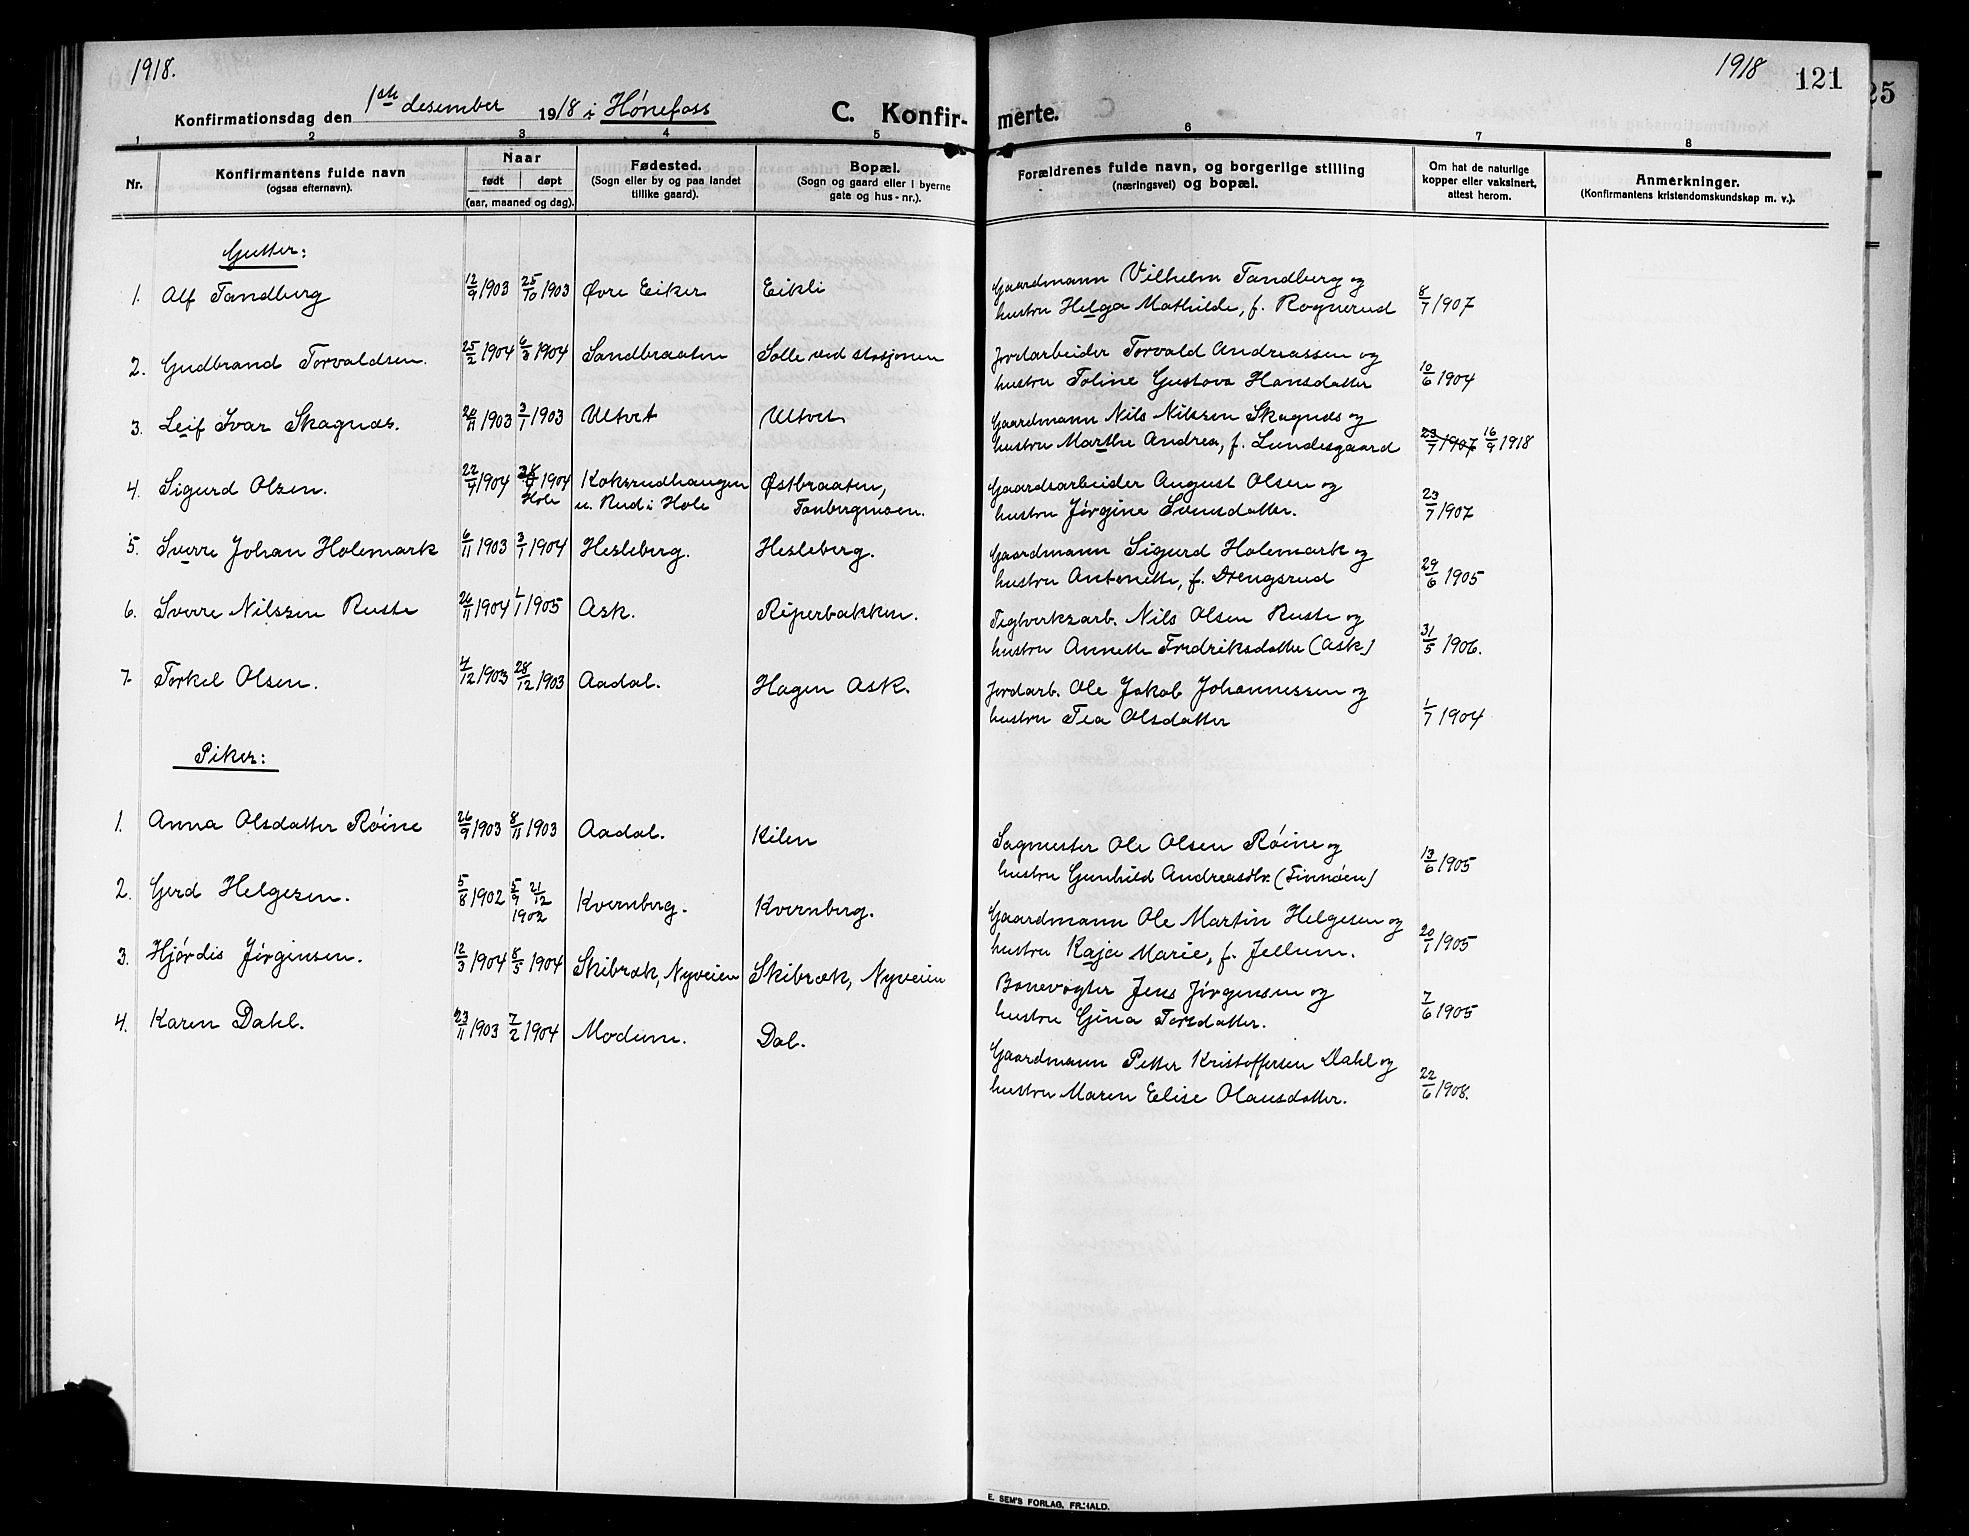 1918.
1918
121
25
Konfirmationsdag den 1ste desember 1918 i Hønefoss
C. Konfir-
merte.
1 2 3 4 5 6 7 8
Nr.
Konfirmantens fulde navn
(ogsaa efternavn).
Naar
født døpt
(aar, maaned og dag).
Fødested.
(Sogn eller by og paa landet
tillike gaard).
Bopæl.
(Sogn og gaard eller i byerne
gate og hus-nr.).
Forældrenes fulde navn, og borgerlige stilling
(næringsvei) og bopæl.
Om hat de naturlige
kopper eller vaksinert,
attest herom.
Anmerkninger.
(Konfirmantens kristendomskundskap m. v.).
Gutter:
1. Alf Tandberg 12/9 1903 25/10 1903 Øvre Eiker Eikli
Gaardmann Vilhelm Tandberg og
hustru Helga Mathilde, f. Rognerud 8/7 1907
2. Gudbrand Torvaldsen. 25/2 1904 6/3 1904 Sandbraaten Solle ved stasjonen
Jordarbeider Torvald Andreassen og
hustru Toline Gustava Hansdatter 10/6 1904
3. Leif Ivar Skagnæs. 1903 3/1 1903 Ultvet Ultvet
Gaardmann Nils Nilssen Skagnæs og
hustru Marthe Andrea, f. Lundesgaard 23/7 1907 16/9 1918
4. Sigurd Olsen. 1904 1904 Koksrudhaugen Østbraaten,
Hole u. Rud i Hole Tanbergmoen.
Gaardsarbeider August Olsen og
hustru Jørgine Svensdatter. 23/7 1907
5. Sverre Johan Holemark 6/11 1903 3/1 1904 Hesleberg. Hesleberg.
Gaardmann Sigurd Holemark og
hustru Antonette, f. Drengsrud 29/6 1905
6. Sverre Nilssen Ruste 26/11 1904 1/1 1905 Ask. Riperbakken.
Teglverksarb. Nils Olsen Ruste og
hustru Annette Fredriksdatter (Ask) 31/5 1906.
7. Torkel Olsen. 7/12 1903 28/12 1903 Aadal. Hagen Ask.
Jordarb. Ole Jakob Johannessen og
hustru Tea Olsdatter 1/7 1904
Piker:
1. Anna Olsdatter Røine 26/9 1903 8/11 1903 Aadal. Kilen
Sagmester Ole Olsen Røine og
hustru Gunhild Andreasdtr. (Finnøen) 13/6 1905
2. Gerd Helgesen. 5/8 1902 5/9 21/12 1902 Kvernberg. Kvernberg.
Gaardmann Ole Martin Helgesen og
hustru Kaja Marie, f. Jellum. 20/1 1905
3. Hjørdis Jørgensen. 12/3 1904 8/5 1904 Skibræk, Nyveien Skibræk, Nyveien
Banevogter Jens Jørgensen og
hustru Gina Torsdatter. 7/6 1905
4. Karen Dahl. 23/11 1903 7/2 1904 Modum. Dal.
Gaardmann Petter Kristoffersen Dahl og
hustru Maren Elise Olausdatter. 22/6 1908.
E. SEM'S FORLAG, FR.HALD.